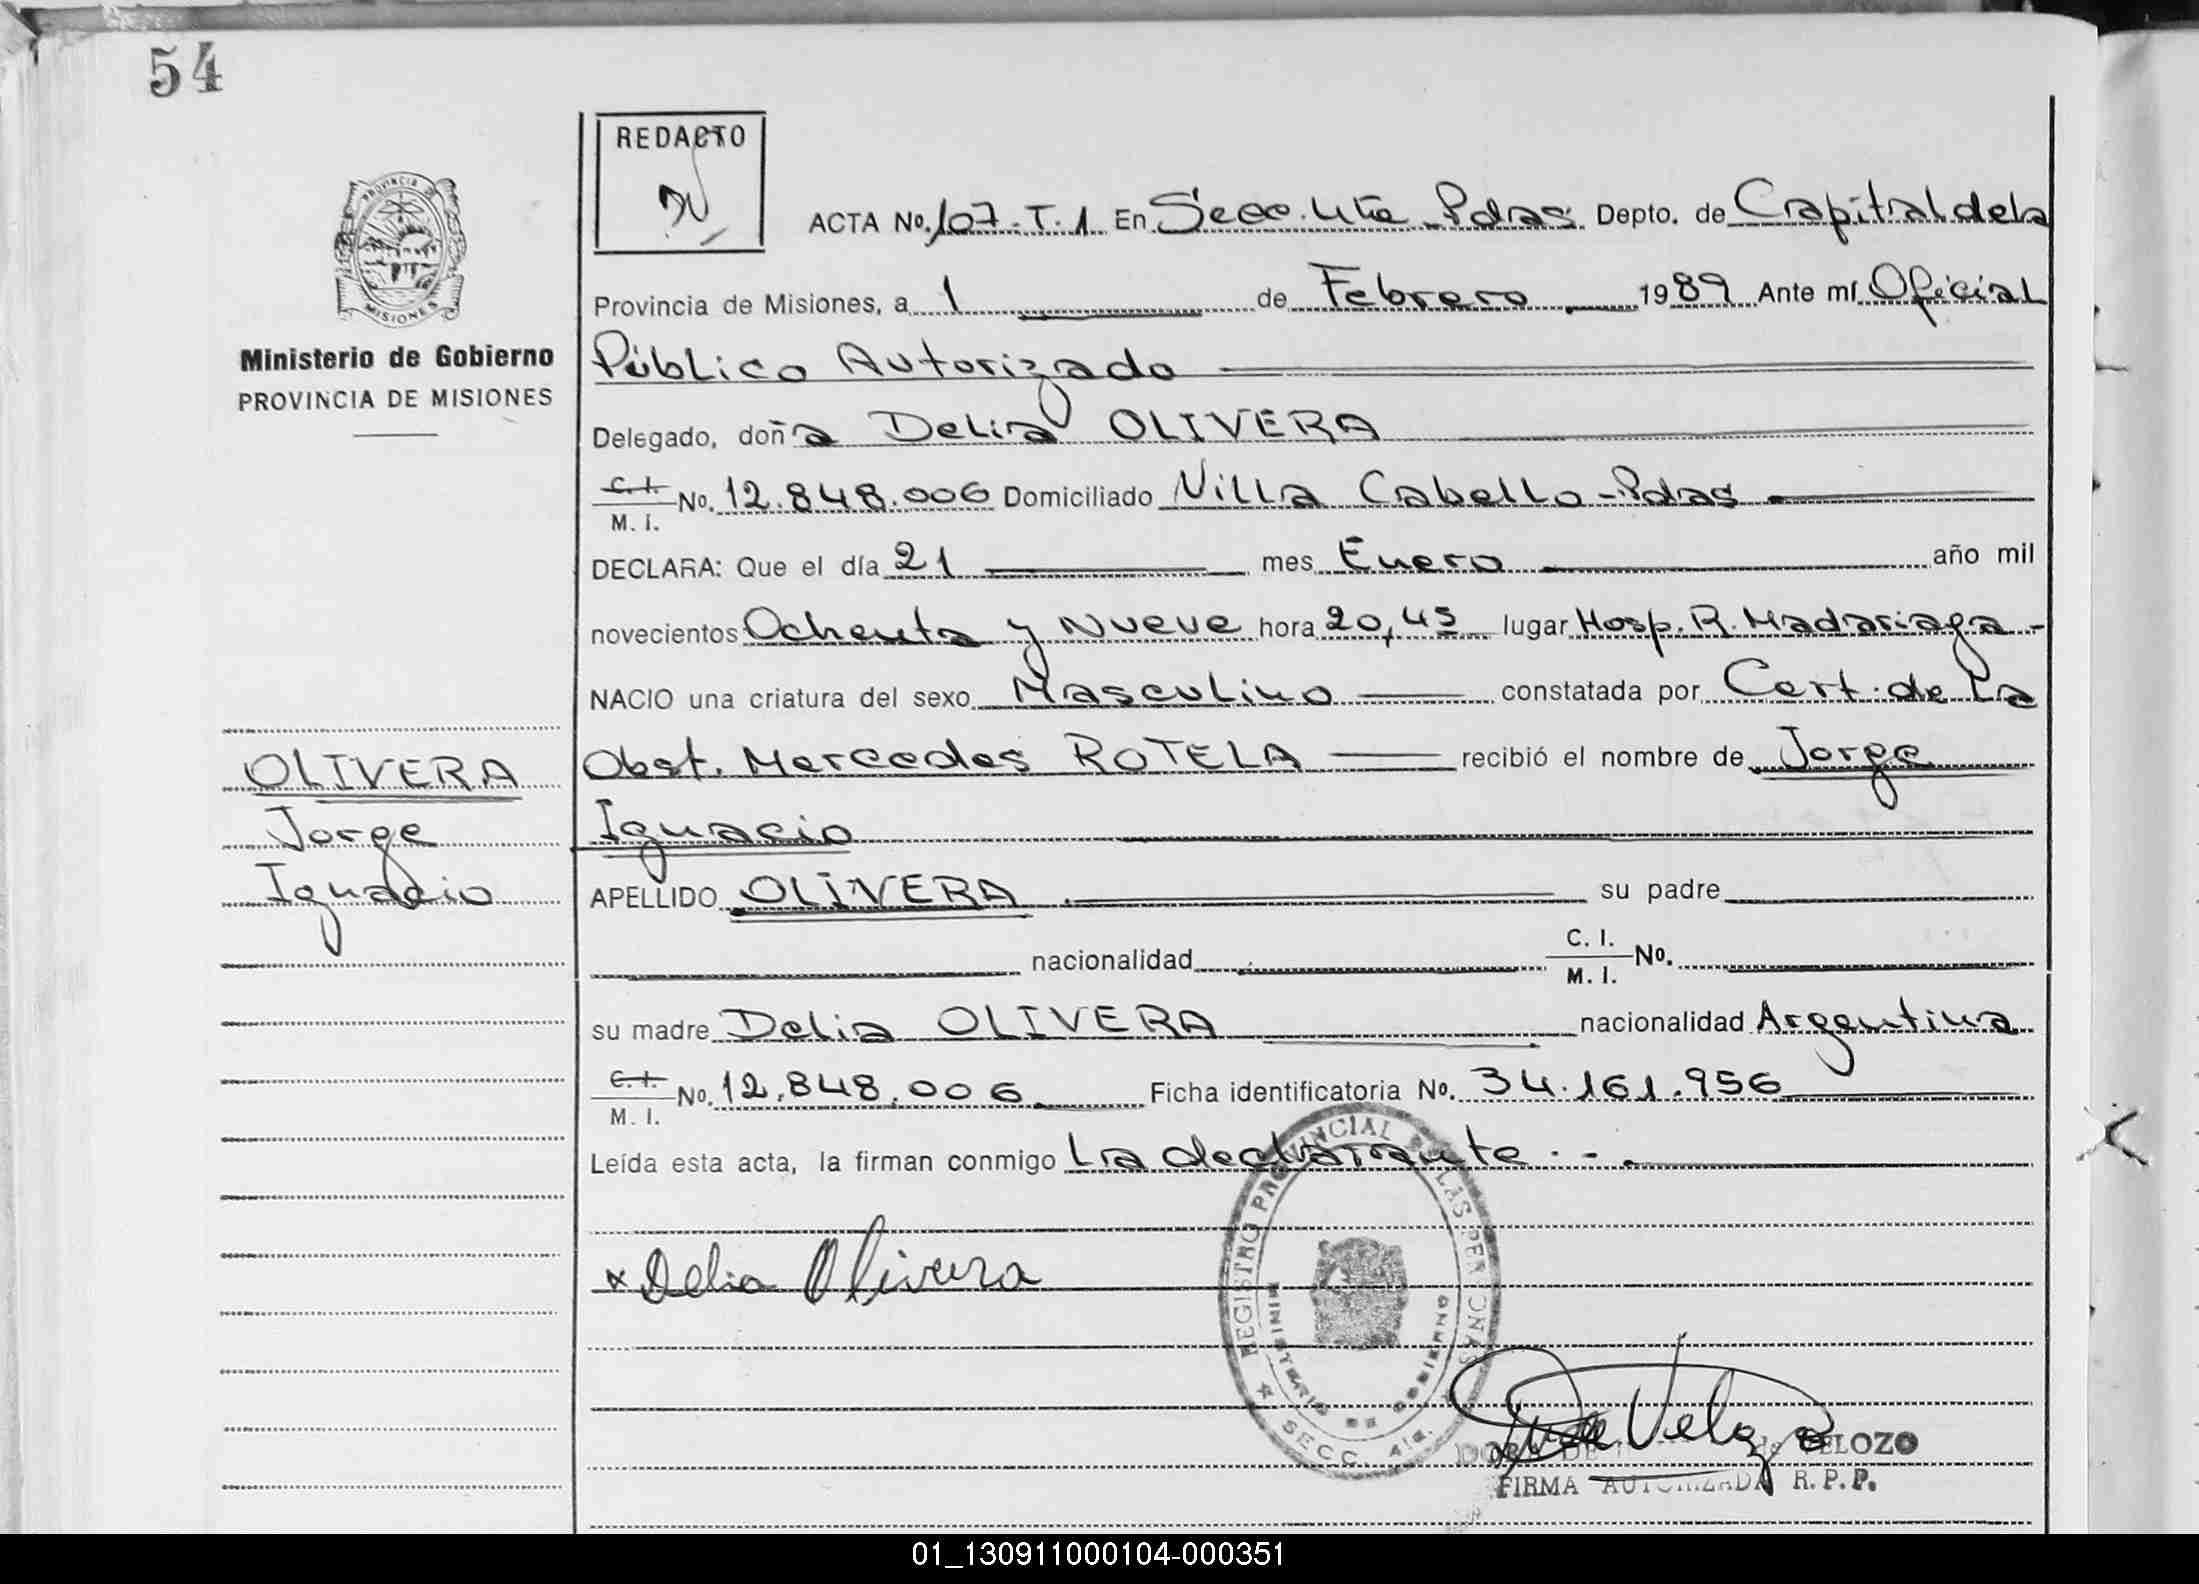 54
REDACTO
ACTA No. 107 - T. 1 En Secc. 4ta - Pdas Depto. de Capital de la
PROVINCIA DE MISIONES
Provincia de Misiones, a 1 de Febrero 1989 Ante mí Oficial
Ministerio de Gobierno
PROVINCIA DE MISIONES
Público Autorizado
Delegado, doña Delia OLIVERA
C. I. / M. I. No. 12.848.006 Domiciliado Villa Cabello - Pdas
DECLARA: Que el día 21 mes Enero año mil
novecientos Ochenta y Nueve hora 20,45 lugar Hosp. R. Madariaga -
NACIO una criatura del sexo Masculino constatada por Cert. de la
Obst. Mercedes ROTELA recibió el nombre de Jorge
Ignacio
OLIVERA
Jorge
Ignacio
APELLIDO OLIVERA su padre
nacionalidad C. I. / M. I. No.
su madre Delia OLIVERA nacionalidad Argentina
C. I. / M. I. No. 12.848.006 Ficha identificatoria No. 34.161.956
Leída esta acta, la firman conmigo La declarante . - .
x Delia Olivera
REGISTRO PROVINCIAL DE LAS PERSONAS
MINISTERIO DE GOBIERNO
SECC. 4ta.
de VELOZO
FIRMA AUTORIZADA R. P. P.
01_130911000104-000351